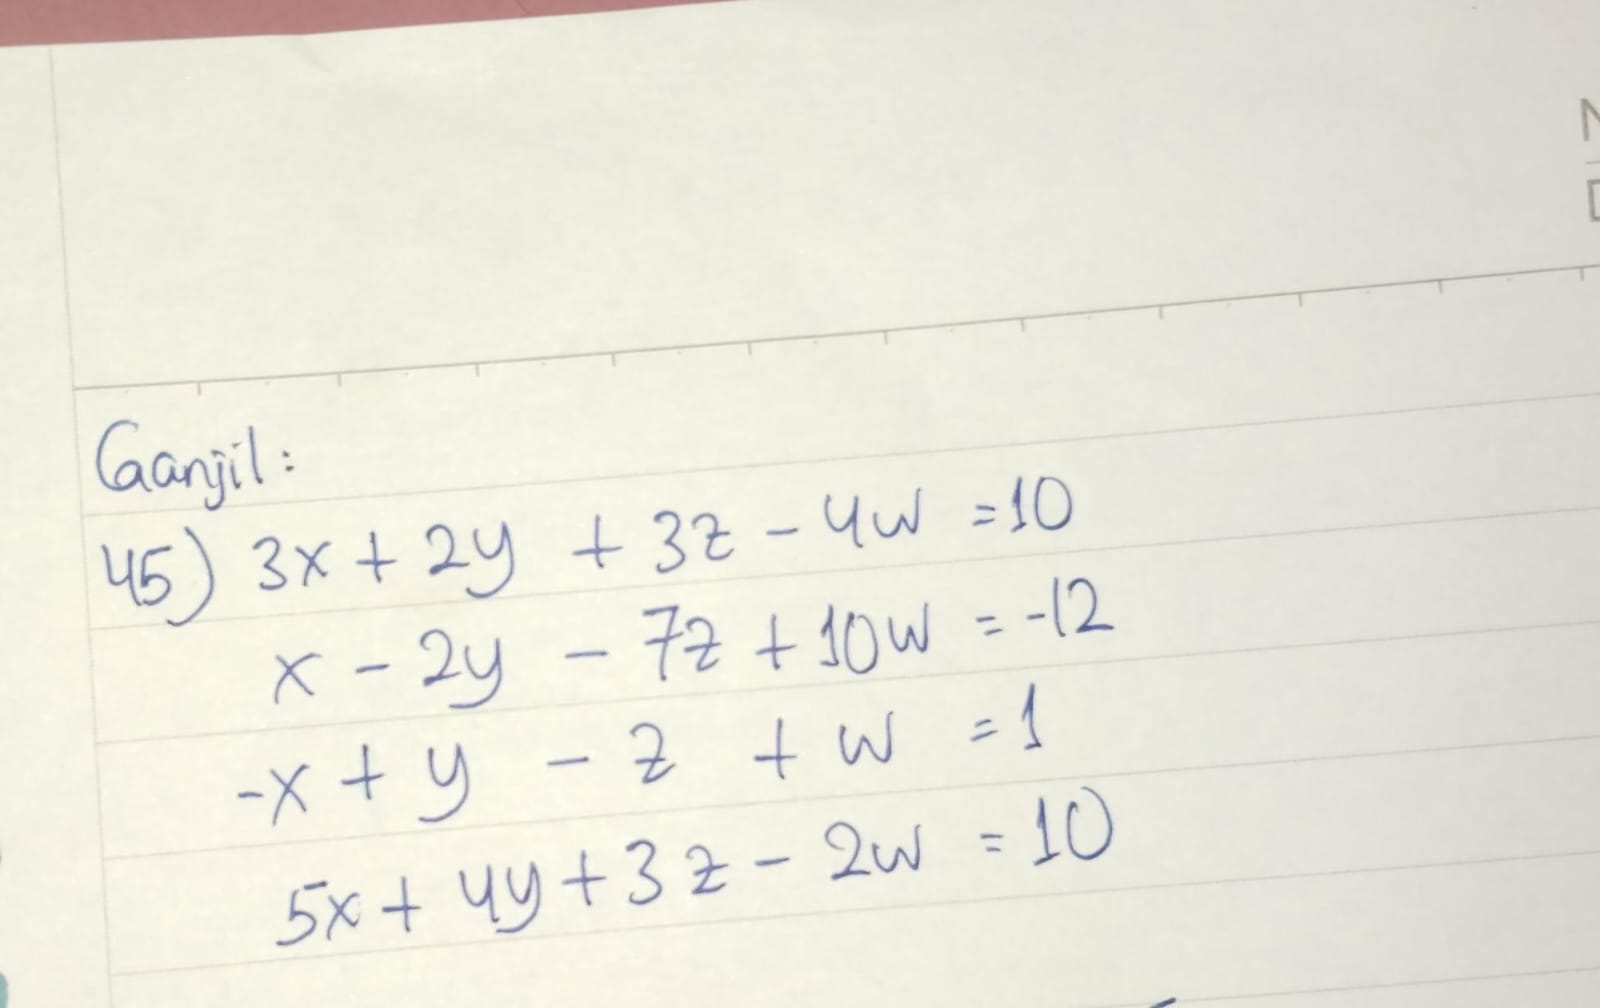 Ganjil:
45) 3x + 2y + 3z - 4w = 10
x - 2y - 7z + 10w = -12
-x + y - z + w = 1
5x + 4y + 3z - 2w = 10